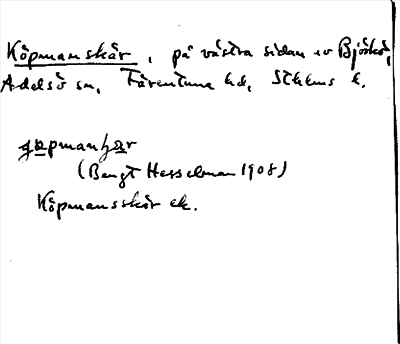 Köpmanskär, på västra sidan av Björkö,
Adelsö sn, Färentuna hd, Sthlms l.
(Bengt Hesselman 1908)
Köpmansskär ek.